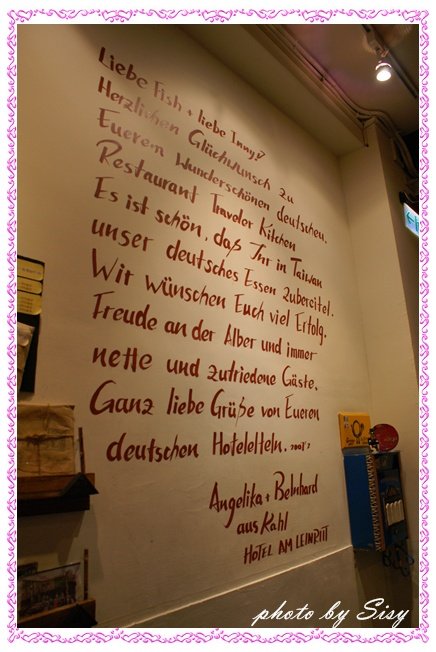 Liebe Fish + liebe Inny!
Herzlichen Glückwunsch zu
Euerem wunderschönen deutschen.
Restaurant Traveler Kitchen
Es ist schön, daß Ihr in Taiwan
unser deutsches Essen zubereitet.
Wir wünschen Euch viel Erfolg.
Freude an der Alber und immer
nette und zufriedene Gäste.
Ganz liebe Grüße von Eueren
deutschen Hotelelteln.
Angelika + Belnhard
aus Kahl
HOTEL AM LEINRITT
photo by Sisy